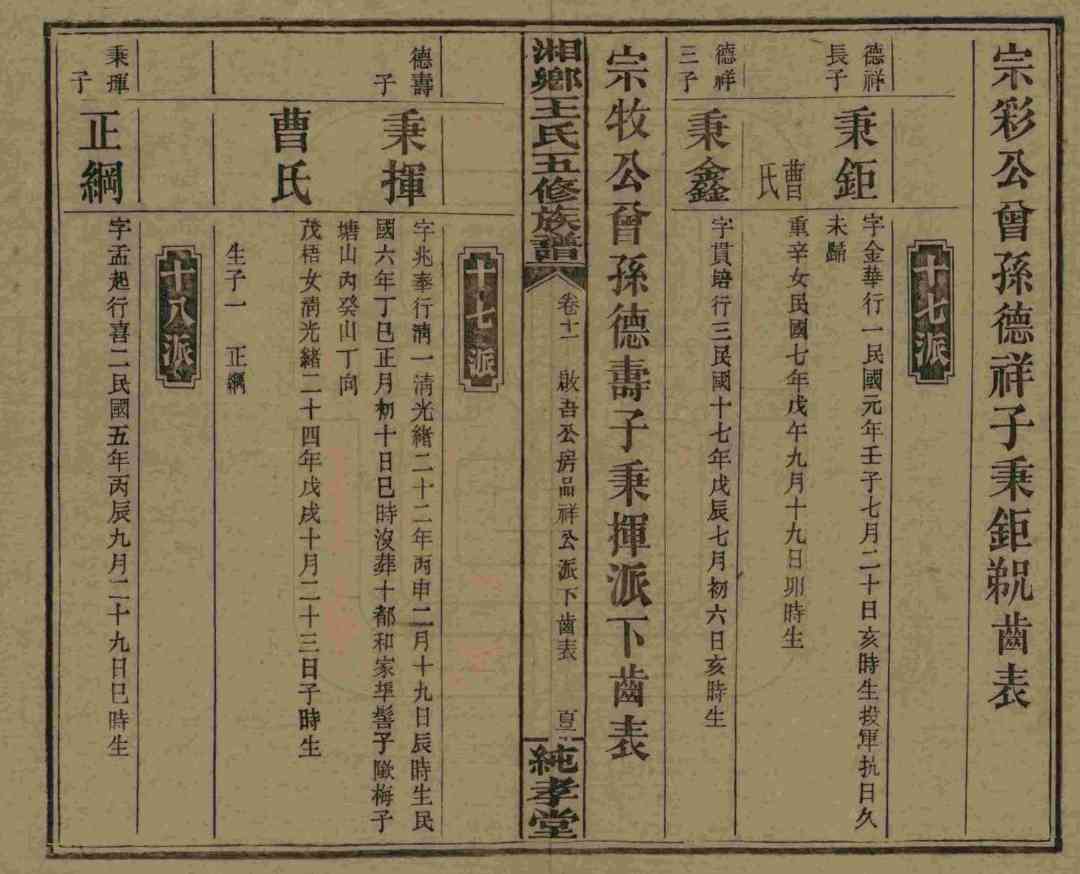 宗彩公曾孫德祥子秉鉅㒭齒表
十七派
德祥長子
秉鉅
字金華行一民國元年壬子七月二十日亥時生投軍抗日久
未歸
曹氏
重辛女民國七年戊午九月十九日卯時生
德祥三子
秉鑫
字貫培行三民國十七年戊辰七月初六日亥時生
宗牧公曾孫德壽子秉揮派下齒表
湘鄉王氏五修族譜
卷十一
啟吾公房品祥公派下齒表
純孝堂
十七派
德壽子
秉揮
字兆奉行清一清光緒二十二年丙申二月十九日辰時生民
國六年丁巳正月初十日巳時沒葬十都和家埧髻子歐梅子
塘山丙癸山丁向
曹氏
茂梧女清光緒二十四年戊戌十月二十三日子時生
生子一 正綱
十八派
秉揮子
正綱
字孟起行喜二民國五年丙辰九月二十九日巳時生